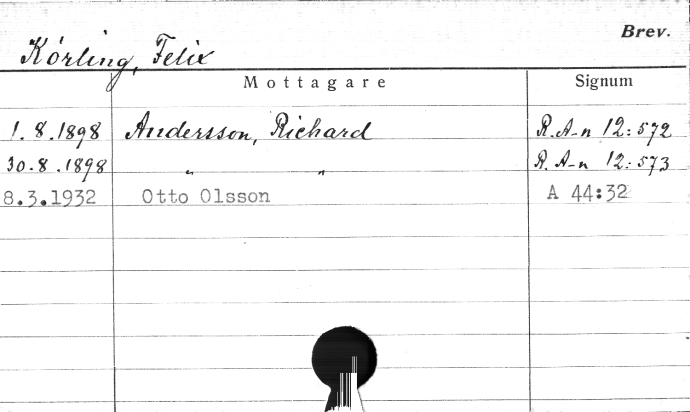 Brev.
Körling, Felix
Mottagare Signum
1.8.1898 Andersson, Richard R. A-n 12:572
30.8.1898 " " R. A-n 12:573
8.3.1932 Otto Olsson A 44:32